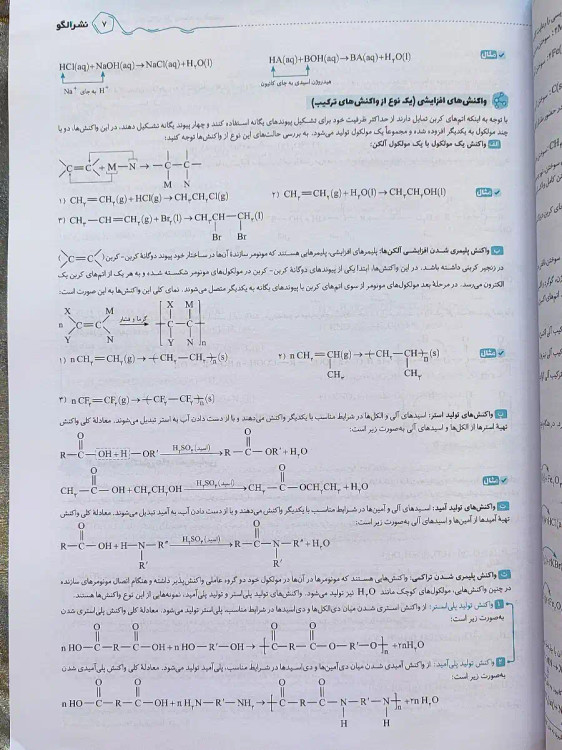 ۷ نشر الگو
مثال
HA(aq)+BOH(aq)→BA(aq)+H۲O(l)
هیدروژن اسیدی به جای کاتیون
HCl(aq)+NaOH(aq)→NaCl(aq)+H۲O(l)
H⁺ به جای Na⁺
واکنش‌های افزایشی (یک نوع از واکنش‌های ترکیب)
با توجه به اینکه اتم‌های کربن تمایل دارند از حداکثر ظرفیت خود برای تشکیل پیوندهای یگانه استفاده کنند و چهار پیوند یگانه تشکیل دهند، در این واکنش‌ها، دو یا
چند مولکول به یکدیگر افزوده شده و مجموعاً یک مولکول تولید می‌شود. به بررسی حالت‌های این نوع از واکنش‌ها توجه کنید:
الف واکنش یک مولکول با یک مولکول آلکن:
C=C + M—N → —C—C—
M N
مثال
۱) CH۲=CH۲(g)+HCl(g)→CH۳CH۲Cl(g)
۲) CH۲=CH۲(g)+H۲O(l)→CH۳CH۲OH(l)
۳) CH۳—CH=CH۲(g)+Br۲(l)→CH۳CH—CH۲(l)
Br Br
ب واکنش پلیمری شدن افزایشی آلکن‌ها: پلیمرهای افزایشی، پلیمرهایی هستند که مونومر سازندهٔ آن‌ها در ساختار خود پیوند دوگانهٔ کربن - کربن (C=C)
در زنجیر کربنی داشته باشد. در این واکنش‌ها، ابتدا یکی از پیوندهای دوگانهٔ کربن - کربن در مولکول‌های مونومر شکسته شده و به هر یک از اتم‌های کربن یک
الکترون می‌رسد. در مرحلهٔ بعد مولکول‌های مونومر از سوی اتم‌های کربن با پیوندهای یگانه به یکدیگر متصل می‌شوند. نمای کلی این واکنش‌ها به این صورت است:
X M X M
n C=C گرما و فشار → [C—C]n
Y N Y N
مثال
۱) nCH۲=CH۲(g)→[CH۲—CH۲]n(s)
۲) nCH۲=CH(g)→[CH۲—CH]n(s)
CH۳ CH۳
۳) nCF۲=CF۲(g)→[CF۲—CF۲]n(s)
پ واکنش‌های تولید استر: اسیدهای آلی و الکل‌ها در شرایط مناسب با یکدیگر واکنش می‌دهند و با از دست دادن آب به استر تبدیل می‌شوند. معادلهٔ کلی واکنش
تهیهٔ استرها از الکل‌ها و اسیدهای آلی به‌صورت زیر است:
O O
R—C—OH+H—OR′ H۲SO۴(اسید) → R—C—OR′+H۲O
مثال
O O
CH۳—C—OH+CH۳CH۲OH H۲SO۴(اسید) → CH۳—C—OCH۲CH۳+H۲O
ت واکنش‌های تولید آمید: اسیدهای آلی و آمین‌ها در شرایط مناسب با یکدیگر واکنش می‌دهند و با از دست دادن آب به آمید تبدیل می‌شوند. معادلهٔ کلی واکنش
تهیهٔ آمیدها از آمین‌ها و اسیدهای آلی به‌صورت زیر است:
O O
R—C—OH+H—N—R″ H۲SO۴(اسید) → R—C—N—R″+H۲O
R′ R′
ث واکنش پلیمری شدن تراکمی: واکنش‌هایی هستند که مونومرها در آن‌ها در مولکول خود دو گروه عاملی واکنش‌پذیر داشته و هنگام اتصال مونومرهای سازنده
در چنین واکنش‌هایی، مولکول‌های کوچک مانند H۲O نیز تولید می‌شود. واکنش‌های تولید پلی‌استر و تولید پلی‌آمید، نمونه‌هایی از این نوع واکنش‌ها هستند.
۱ واکنش تولید پلی‌استر: از واکنش استری شدن میان دی‌الکل‌ها و دی‌اسیدها در شرایط مناسب، پلی‌استر تولید می‌شود. معادلهٔ کلی واکنش پلی‌استری شدن
به‌صورت زیر است:
O O O O
n HO—C—R—C—OH+n HO—R′—OH→[C—R—C—O—R′—O]n+۲nH۲O
۲ واکنش تولید پلی‌آمید: از واکنش آمیدی شدن میان دی‌آمین‌ها و دی‌اسیدها در شرایط مناسب، پلی‌آمید تولید می‌شود. معادلهٔ کلی واکنش پلی‌آمیدی شدن
به‌صورت زیر است:
O O O O
n HO—C—R—C—OH+n H۲N—R′—NH۲→[C—R—C—N—R′—N]n+۲n H۲O
H H